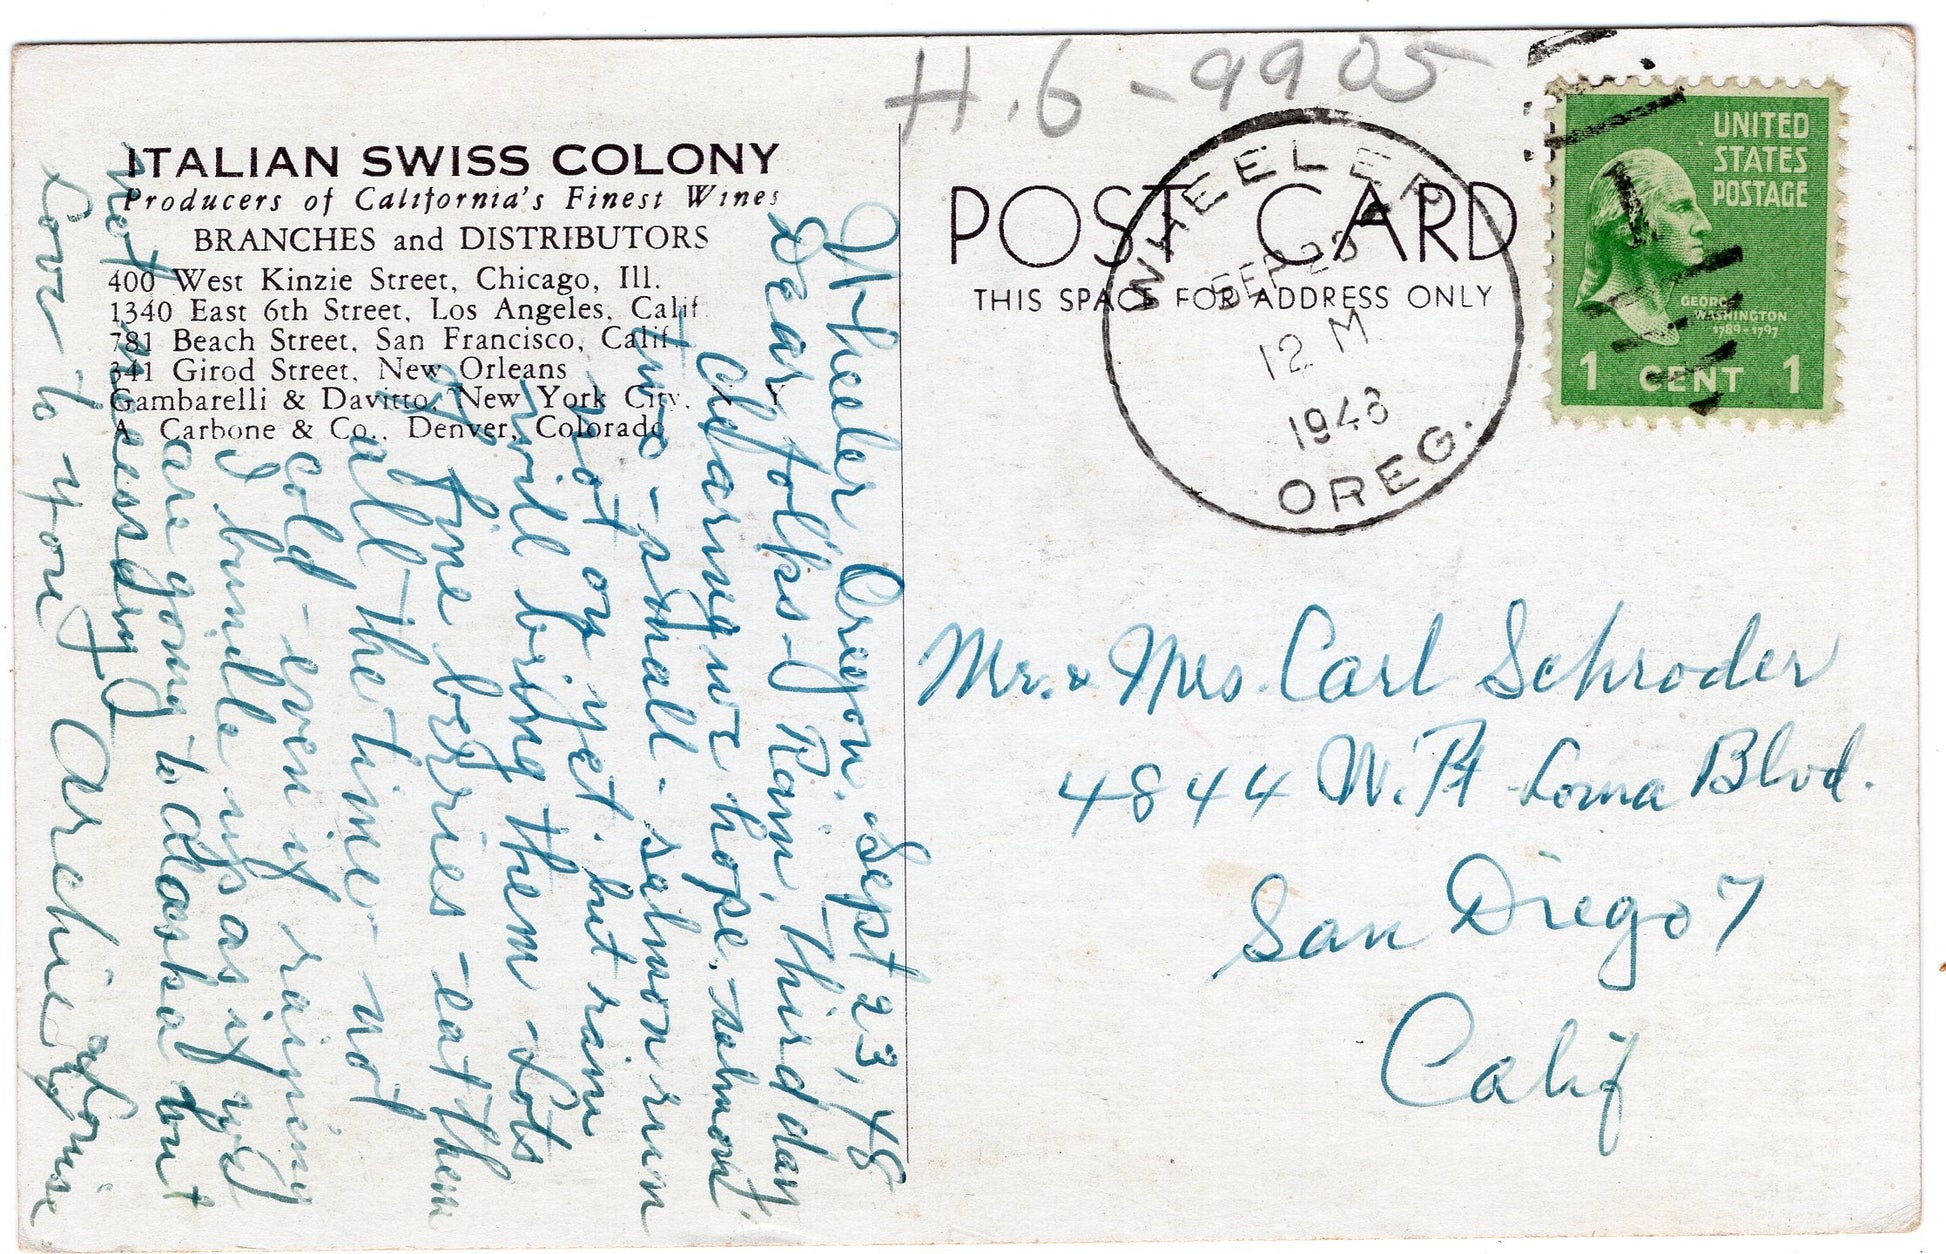 H.6-9905
ITALIAN SWISS COLONY
Producers of California's Finest Wines
BRANCHES and DISTRIBUTORS
400 West Kinzie Street, Chicago, Ill.
1340 East 6th Street, Los Angeles, Calif.
781 Beach Street, San Francisco, Calif.
341 Girod Street, New Orleans
Gambarelli & Davitto, New York City, N. Y.
A. Carbone & Co., Denver, Colorado
POST CARD
THIS SPACE FOR ADDRESS ONLY
WHEELER
SEP 23
12 M
1948
OREG.
UNITED
STATES
POSTAGE
GEORGE
WASHINGTON
1789-1797
1 CENT 1
Wheeler Oregon. Sept 23, 48
Dear folks - Rain, third day
Clearing we hope, - salmon
two - small - salmon run
not on yet. but rain
will bring them - Lots
of fine berries - eat them
all the time - not
cold - even if raining
I bundle up as if we
are going to Alaska but
not necessary
Love to you Archie & Louise
Mr. & Mrs. Carl Schroder
4844 W. Pt Loma Blvd.
San Diego 7
Calif